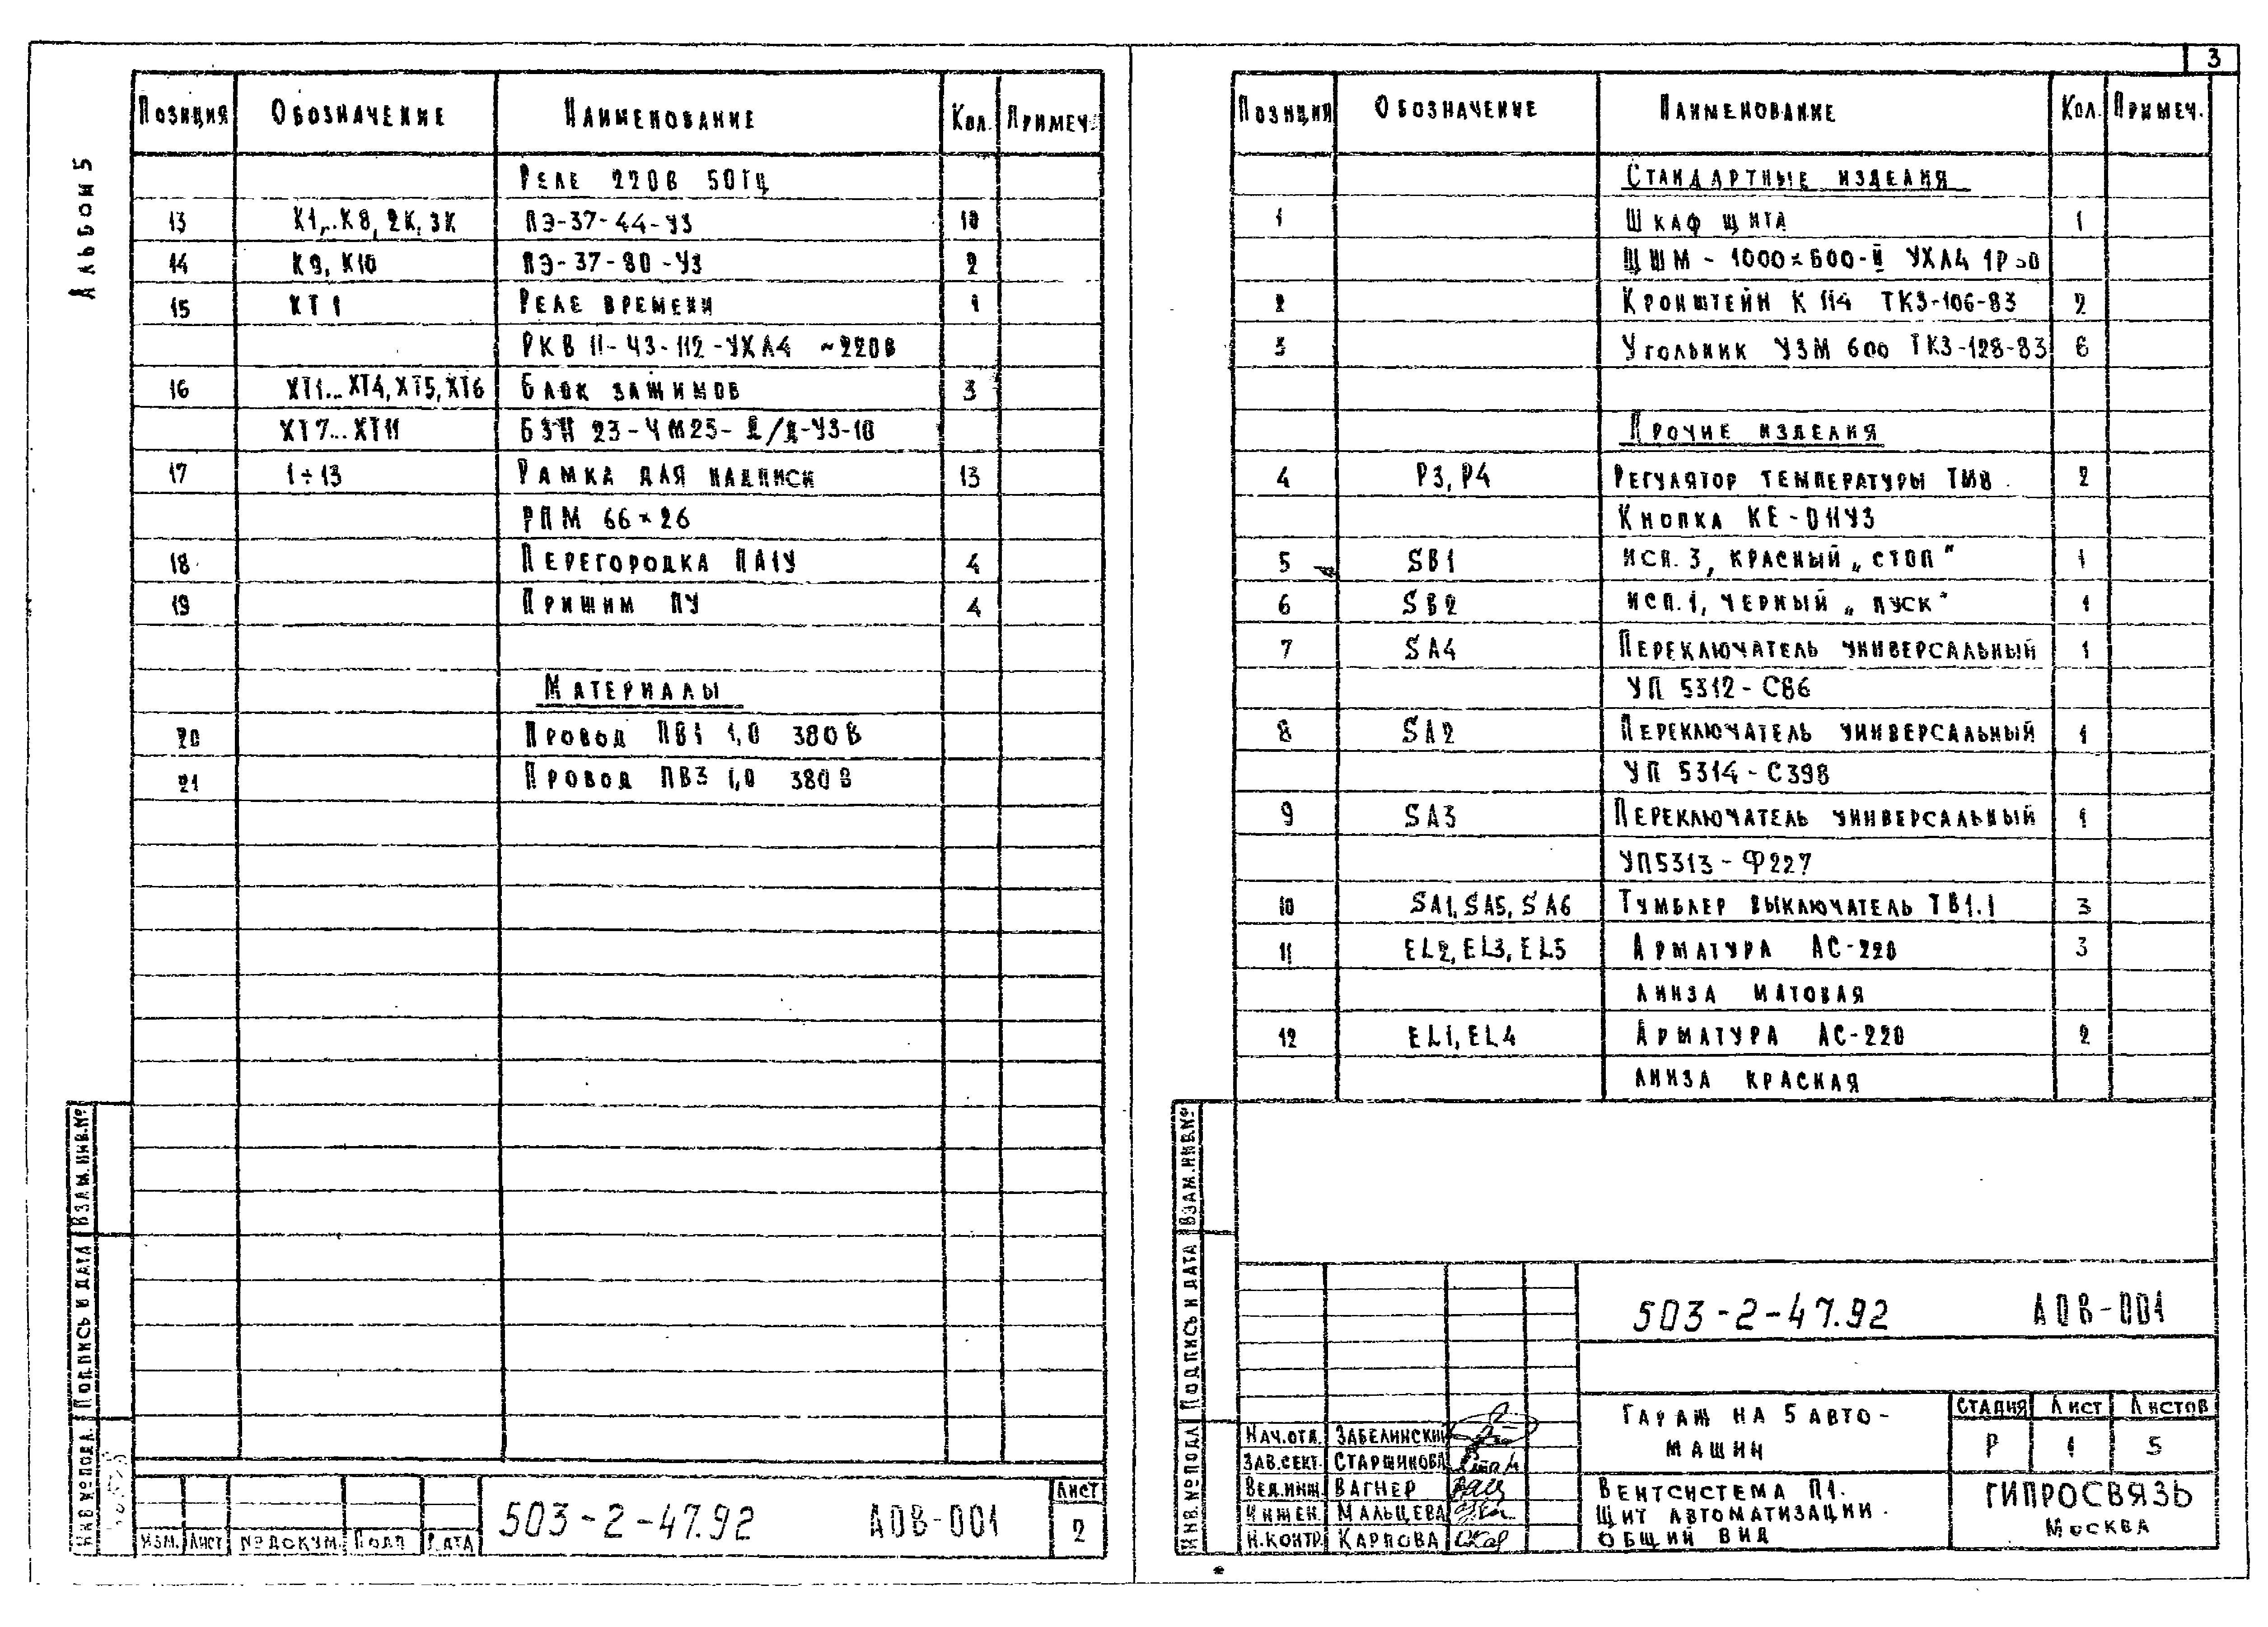 3
Альбом 5
Позиция Обозначение Наименование Кол. Примеч.
Реле 220В 50Гц
13 К1...К8, 2К, 3К ПЭ-37-44-У3 10
14 К9, К10 ПЭ-37-80-У3 2
15 КТ1 Реле времени 1
РКВ 11-43-112-УХЛ4 ~220В
16 ХТ1...ХТ4, ХТ5, ХТ6 Блок зажимов 3
ХТ7...ХТ11 БЗН 23-4М25-Д/Д-У3-10
17 1÷13 Рамка для надписи 13
РПМ 66×26
18 Перегородка ПА1У 4
19 Прижим ПУ 4
Материалы
20 Провод ПВ1 1,0 380В
21 Провод ПВ3 1,0 380В
Взам. инв. №
Подпись и дата
Инв. № подл.
Изм. Лист № докум. Подп. Дата
503-2-47.92 АОВ-001
Лист
2
Позиция Обозначение Наименование Кол. Примеч.
Стандартные изделия
1 Шкаф щита 1
ЩШМ-1000×600-II УХЛ4 IP30
2 Кронштейн К 114 ТК3-106-83 2
3 Угольник УЗМ 600 ТК3-128-83 6
Прочие изделия
4 Р3, Р4 Регулятор температуры ТМ8 2
Кнопка КЕ-011У3
5 SB1 исп. 3, красный „стоп" 1
6 SB2 исп. 1, черный „пуск" 1
7 SA4 Переключатель универсальный 1
УП 5312-С86
8 SA2 Переключатель универсальный 1
УП 5314-С398
9 SA3 Переключатель универсальный 1
УП5313-Ф227
10 SA1, SA5, SA6 Тумблер выключатель ТВ1.1 3
11 EL2, EL3, EL5 Арматура АС-220 3
линза матовая
12 EL1, EL4 Арматура АС-220 2
линза красная
Взам. инв. №
Подпись и дата
Инв. № подл
503-2-47.92 АОВ-001
Гараж на 5 авто-
машин
Стадия Лист Листов
Р 1 5
Нач. отд. Забелинский
Зав. сект. Старшинова
Вед. инж. Вагнер
Инжен. Мальцева
Н. контр. Карпова
Вентсистема П1.
Щит автоматизации.
Общий вид
ГИПРОСВЯЗЬ
Москва